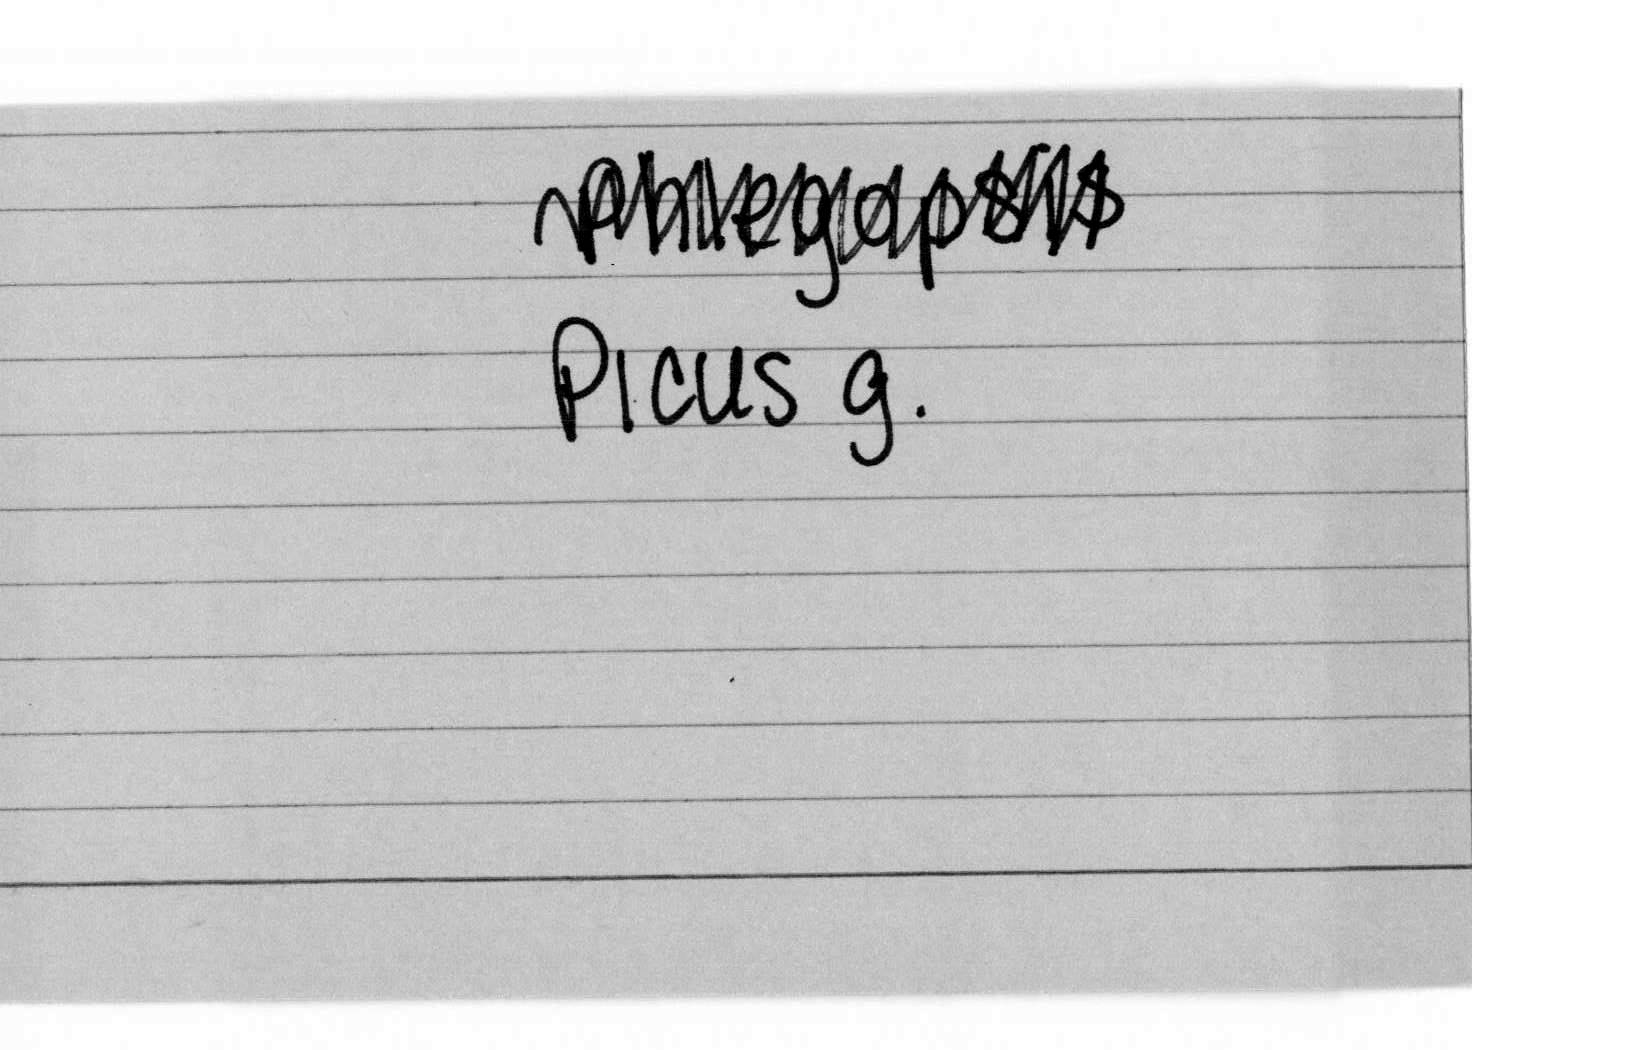 Phlegopsis
Picus g.